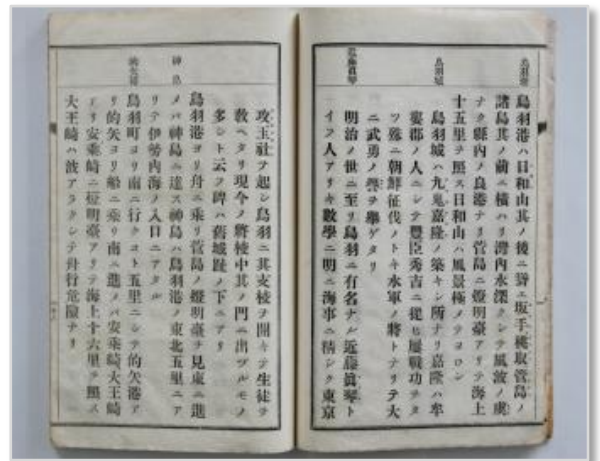 鳥羽港
鳥羽港ハ日和山其ノ後ニ聳エ坂手桃取菅島ノ
諸島其ノ前ニ橫ハリ灣內水深クシテ風波ノ虞
ナク縣內ノ良港ナリ菅島ニ燈明臺アリテ海上
十五里ヲ照ス日和山ハ風景極メテヨロシ
鳥羽城
鳥羽城ハ九鬼嘉隆ノ築キシ所ナリ嘉隆ハ牟
婁郡ノ人ニシテ豐臣秀吉ニ從ヒ屢戰功ヲタ
ツ殊ニ朝鮮征伐ノトキ水軍ノ將トナリテ大
ニ武勇ノ譽ヲ擧ゲタリ
近藤眞琴
明治ノ世ニ至リ鳥羽ニ有名ナル近藤眞琴ト
イフ人アリキ數學ニ明ニ海事ニ精シク東京
攻玉社ヲ起シ鳥羽ニ其支校ヲ開キテ生徒ヲ
敎ヘタリ現今ノ將校中其ノ門ニ出ヅルモノ
多シト云フ碑ハ舊城趾ノ下ニアリ
神島
鳥羽港ヨリ舟ニ乘リ菅島ノ燈明臺ヲ見東ニ進
メバ神島ニ達ス神島ハ鳥羽港ノ東北五里ニア
リテ伊勢內海ノ入口ニアタル
的矢港
鳥羽町ヨリ南ニ行クコト五里ニシテ的矢港ア
リ的矢ヨリ船ニ乘リ南ニ進メバ安乘崎大王崎
アリ安乘崎ニ燈明臺アリテ海上十六里ヲ照ス
大王崎ハ波アラクシテ舟行危險ナリ